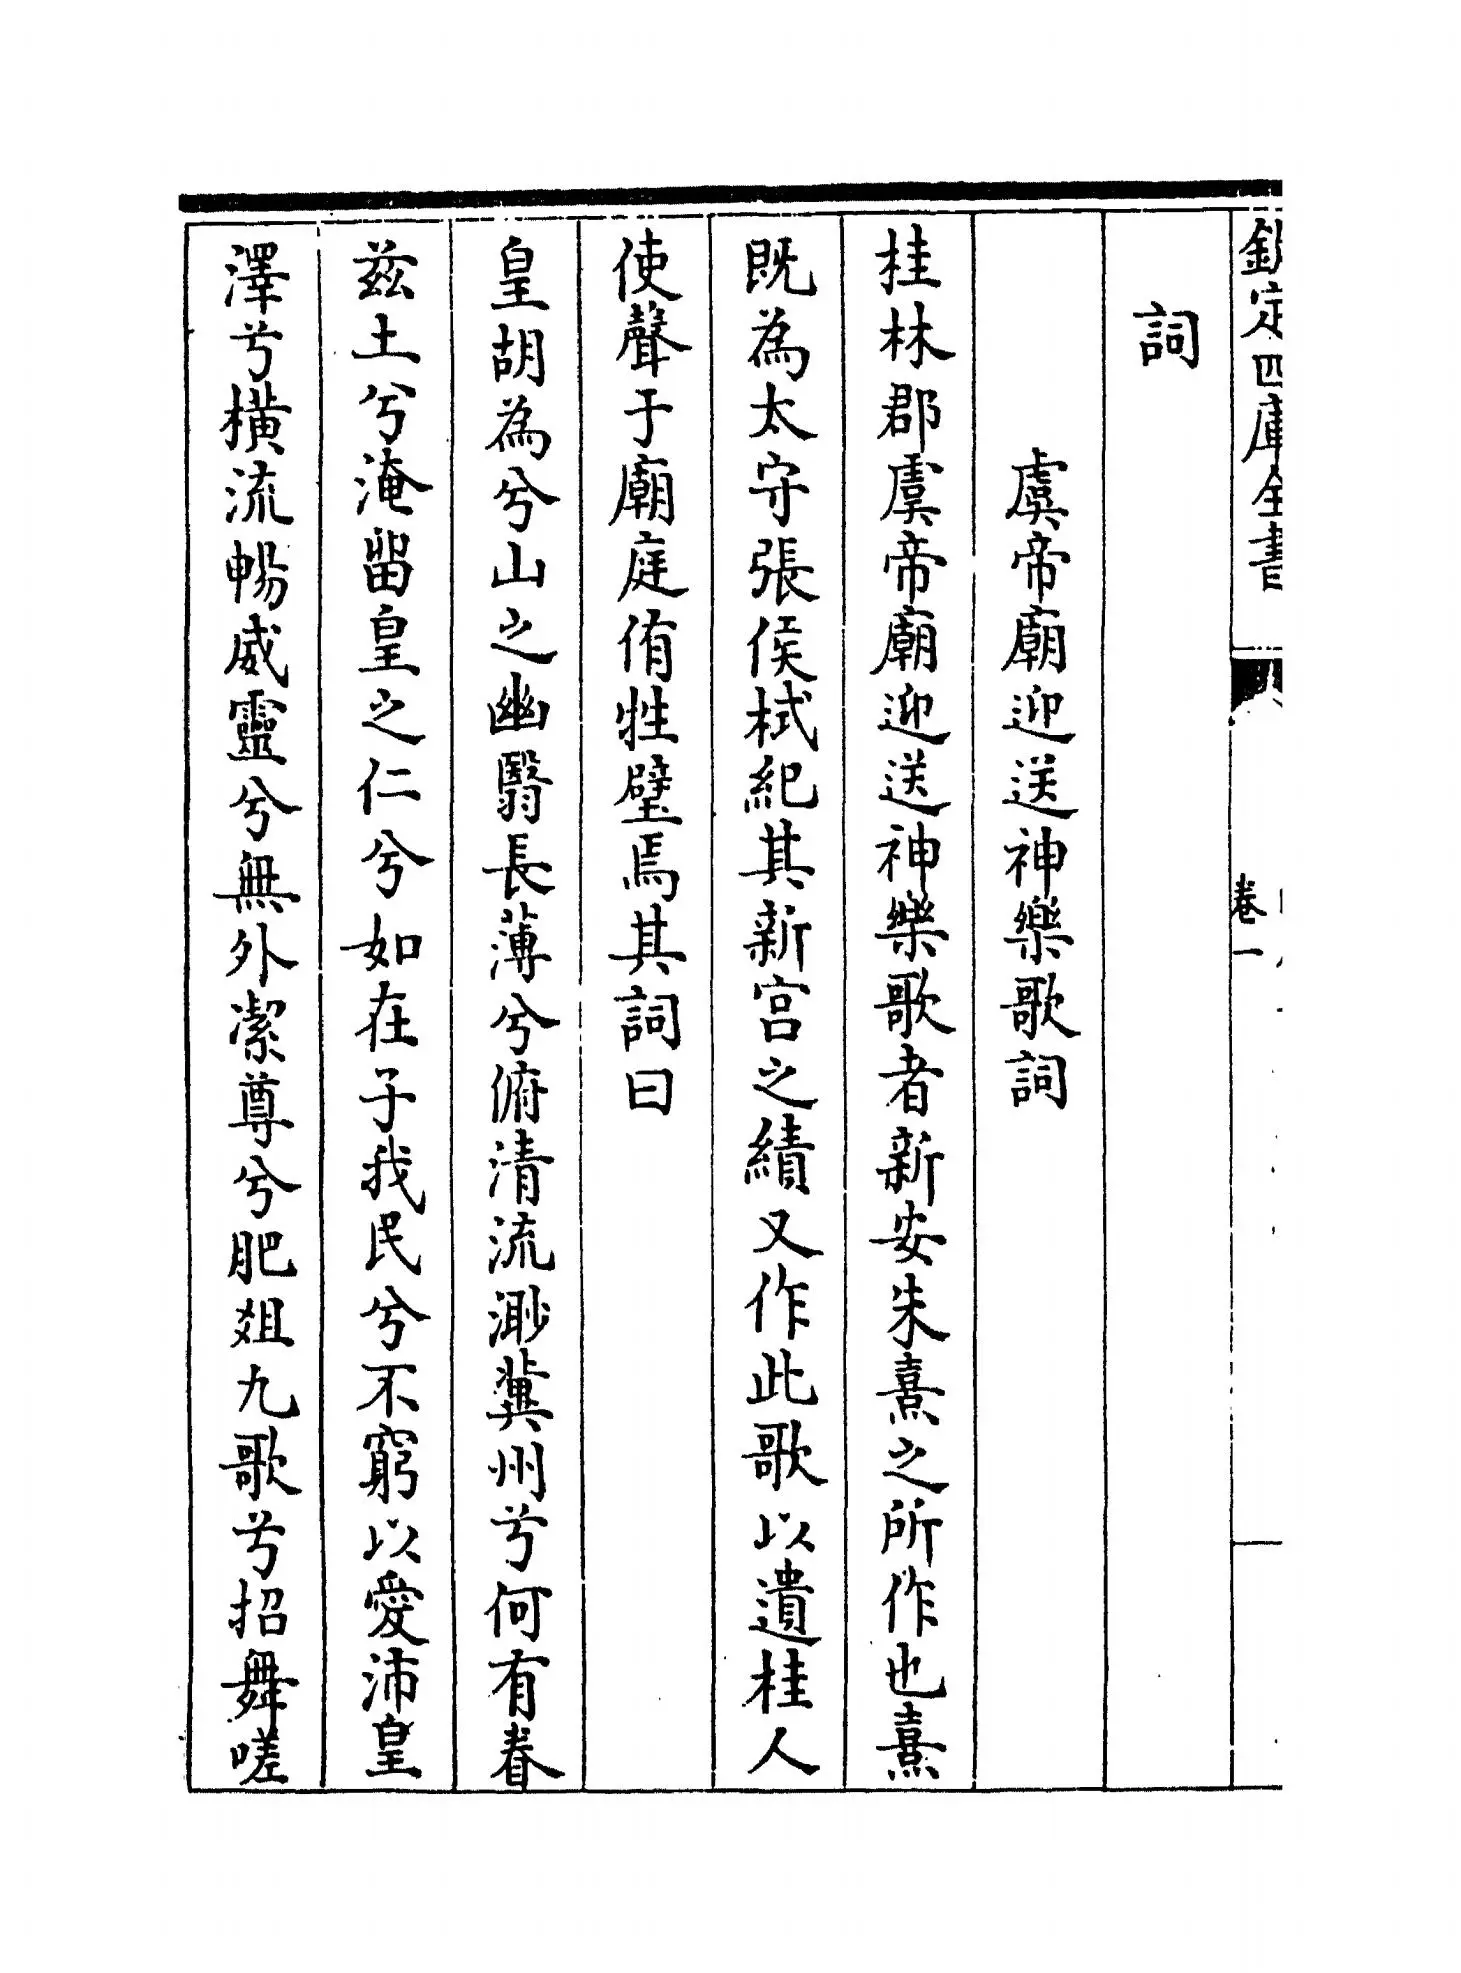 欽定四庫全書
卷一
詞
虞帝廟迎送神樂歌詞
桂林郡虞帝廟迎送神樂歌者新安朱熹之所作也熹
既為太守張侯栻紀其新宫之績又作此歌以遺桂人
使聲于廟庭侑牲璧焉其詞曰
皇胡為兮山之幽翳長薄兮俯清流渺冀州兮何有眷
兹土兮淹留皇之仁兮如在子我民兮不窮以愛沛皇
澤兮横流暢威靈兮無外潔尊兮肥俎九歌兮招舞嗟